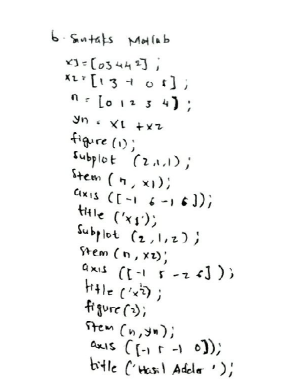 6. Sintaks Matlab
x1 = [0 3 4 4 2] ;
x2 = [1 3 -1 0 5] ;
n = [0 1 2 3 4] ;
yn = x1 + x2
figure (1) ;
subplot (2,1,1) ;
stem (n, x1) ;
axis ([-1 6 -1 6]) ;
title ('x1') ;
Subplot (2,1,2) ;
stem (n, x2) ;
axis ([-1 5 -2 6] ) ;
title ('x2') ;
figure (2) ;
stem (n, yn) ;
axis ([-1 5 -1 0]) ;
title ('Hasil Adder ') ;